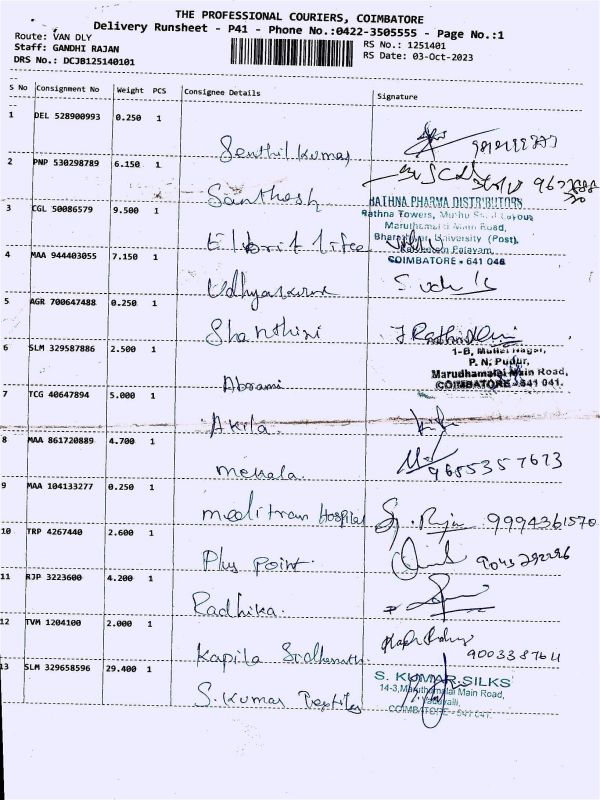 THE PROFESSIONAL COURIERS, COIMBATORE
Delivery Runsheet - P41 - Phone No.:0422-3505555 - Page No.:1
Route: VAN DLY
Staff: GANDHI RAJAN
DRS No.: DCJB125140101
RS No.: 1251401
RS Date: 03-Oct-2023
S No Consignment No Weight PCS Consignee Details Signature
1 DEL 528900993 0.250 1
Senthil kumar
2 PNP 530298789 6.150 1
Santhosh
3 CGL 50086579 9.500 1
RATHNA PHARMA DISTRIBUTORS
Rathna Towers,
Maruthamalai Main Road,
University (Post),
COIMBATORE - 641 046
4 MAA 944403055 7.150 1
5 AGR 700647488 0.250 1
Shanthini
6 SLM 329587886 2.500 1
Abirami
P. N. Pudur,
Marudhamalai Main Road,
COIMBATORE - 641 041.
7 TCG 40647894 5.000 1
Akila.
8 MAA 861720889 4.700 1
Mekala.
9655357673
9 MAA 104133277 0.250 1
Meditran Hospital
9994361570
10 TRP 4267440 2.600 1
Plus Point.
11 RJP 3223600 4.200 1
Radhika.
12 TVM 1204100 2.000 1
Kapila
13 SLM 329658596 29.400 1
S. Kumar
S. KUMAR SILKS
14-3, Maruthamalai Main Road,
Vadavalli,
COIMBATORE - 641 041.